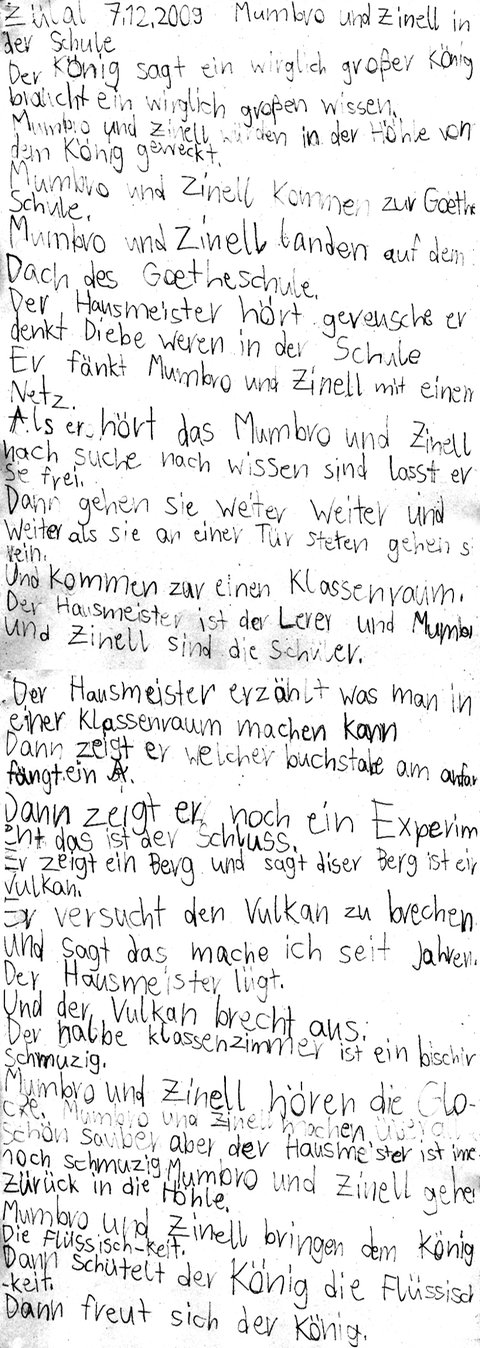 Zülal 7.12.2009 Mumbro und Zinell in
der Schule
Der König sagt ein wirglich großer König
braucht ein wirglich großen wissen.
Mumbro und Zinell würden in der Höhle von
dem König geweckt.
Mumbro und Zinell Kommen zur Goethe
Schule.
Mumbro und Zinell landen auf dem
Dach des Goetheschule.
Der Hausmeister hört gereusche er
denkt Diebe weren in der Schule
Er fänkt Mumbro und Zinell mit einem
Netz.
Als er hört das Mumbro und Zinell
nach suche nach wissen sind lasst er
sie frei.
Dann gehen sie weiter weiter und
weiter als sie an einer Tür steten gehen s
rein.
Und Kommen zur einen Klassenraum.
Der Hausmeister ist der Lerer und Mumbr
und Zinell sind die Schüler.
Der Hausmeister erzählt was man in
einer Klassenraum machen kann
Dann zeigt er welcher buchstabe am anfan
fängt ein A.
Dann zeigt er noch ein Experim
ent das ist der Schluss.
Er zeigt ein Berg und sagt diser Berg ist ein
Vulkan.
Er versucht den Vulkan zu brechen
und sagt das mache ich seit Jahren.
Der Hausmeister lügt.
Und der Vulkan brecht aus.
Der halbe klassenzimmer ist ein bischin
schmuzig.
Mumbro und Zinell hören die Glo-
cke. Mumbro und Zinell machen überall
schön sauber aber der Hausmeister ist ime
noch schmuzig Mumbro und Zinell gehen
zürück in die Höhle.
Mumbro und Zinell bringen dem König
Die Flüssisch-keit.
Dann schütelt der König die Flüssisch
-keit.
Dann freut sich der König.